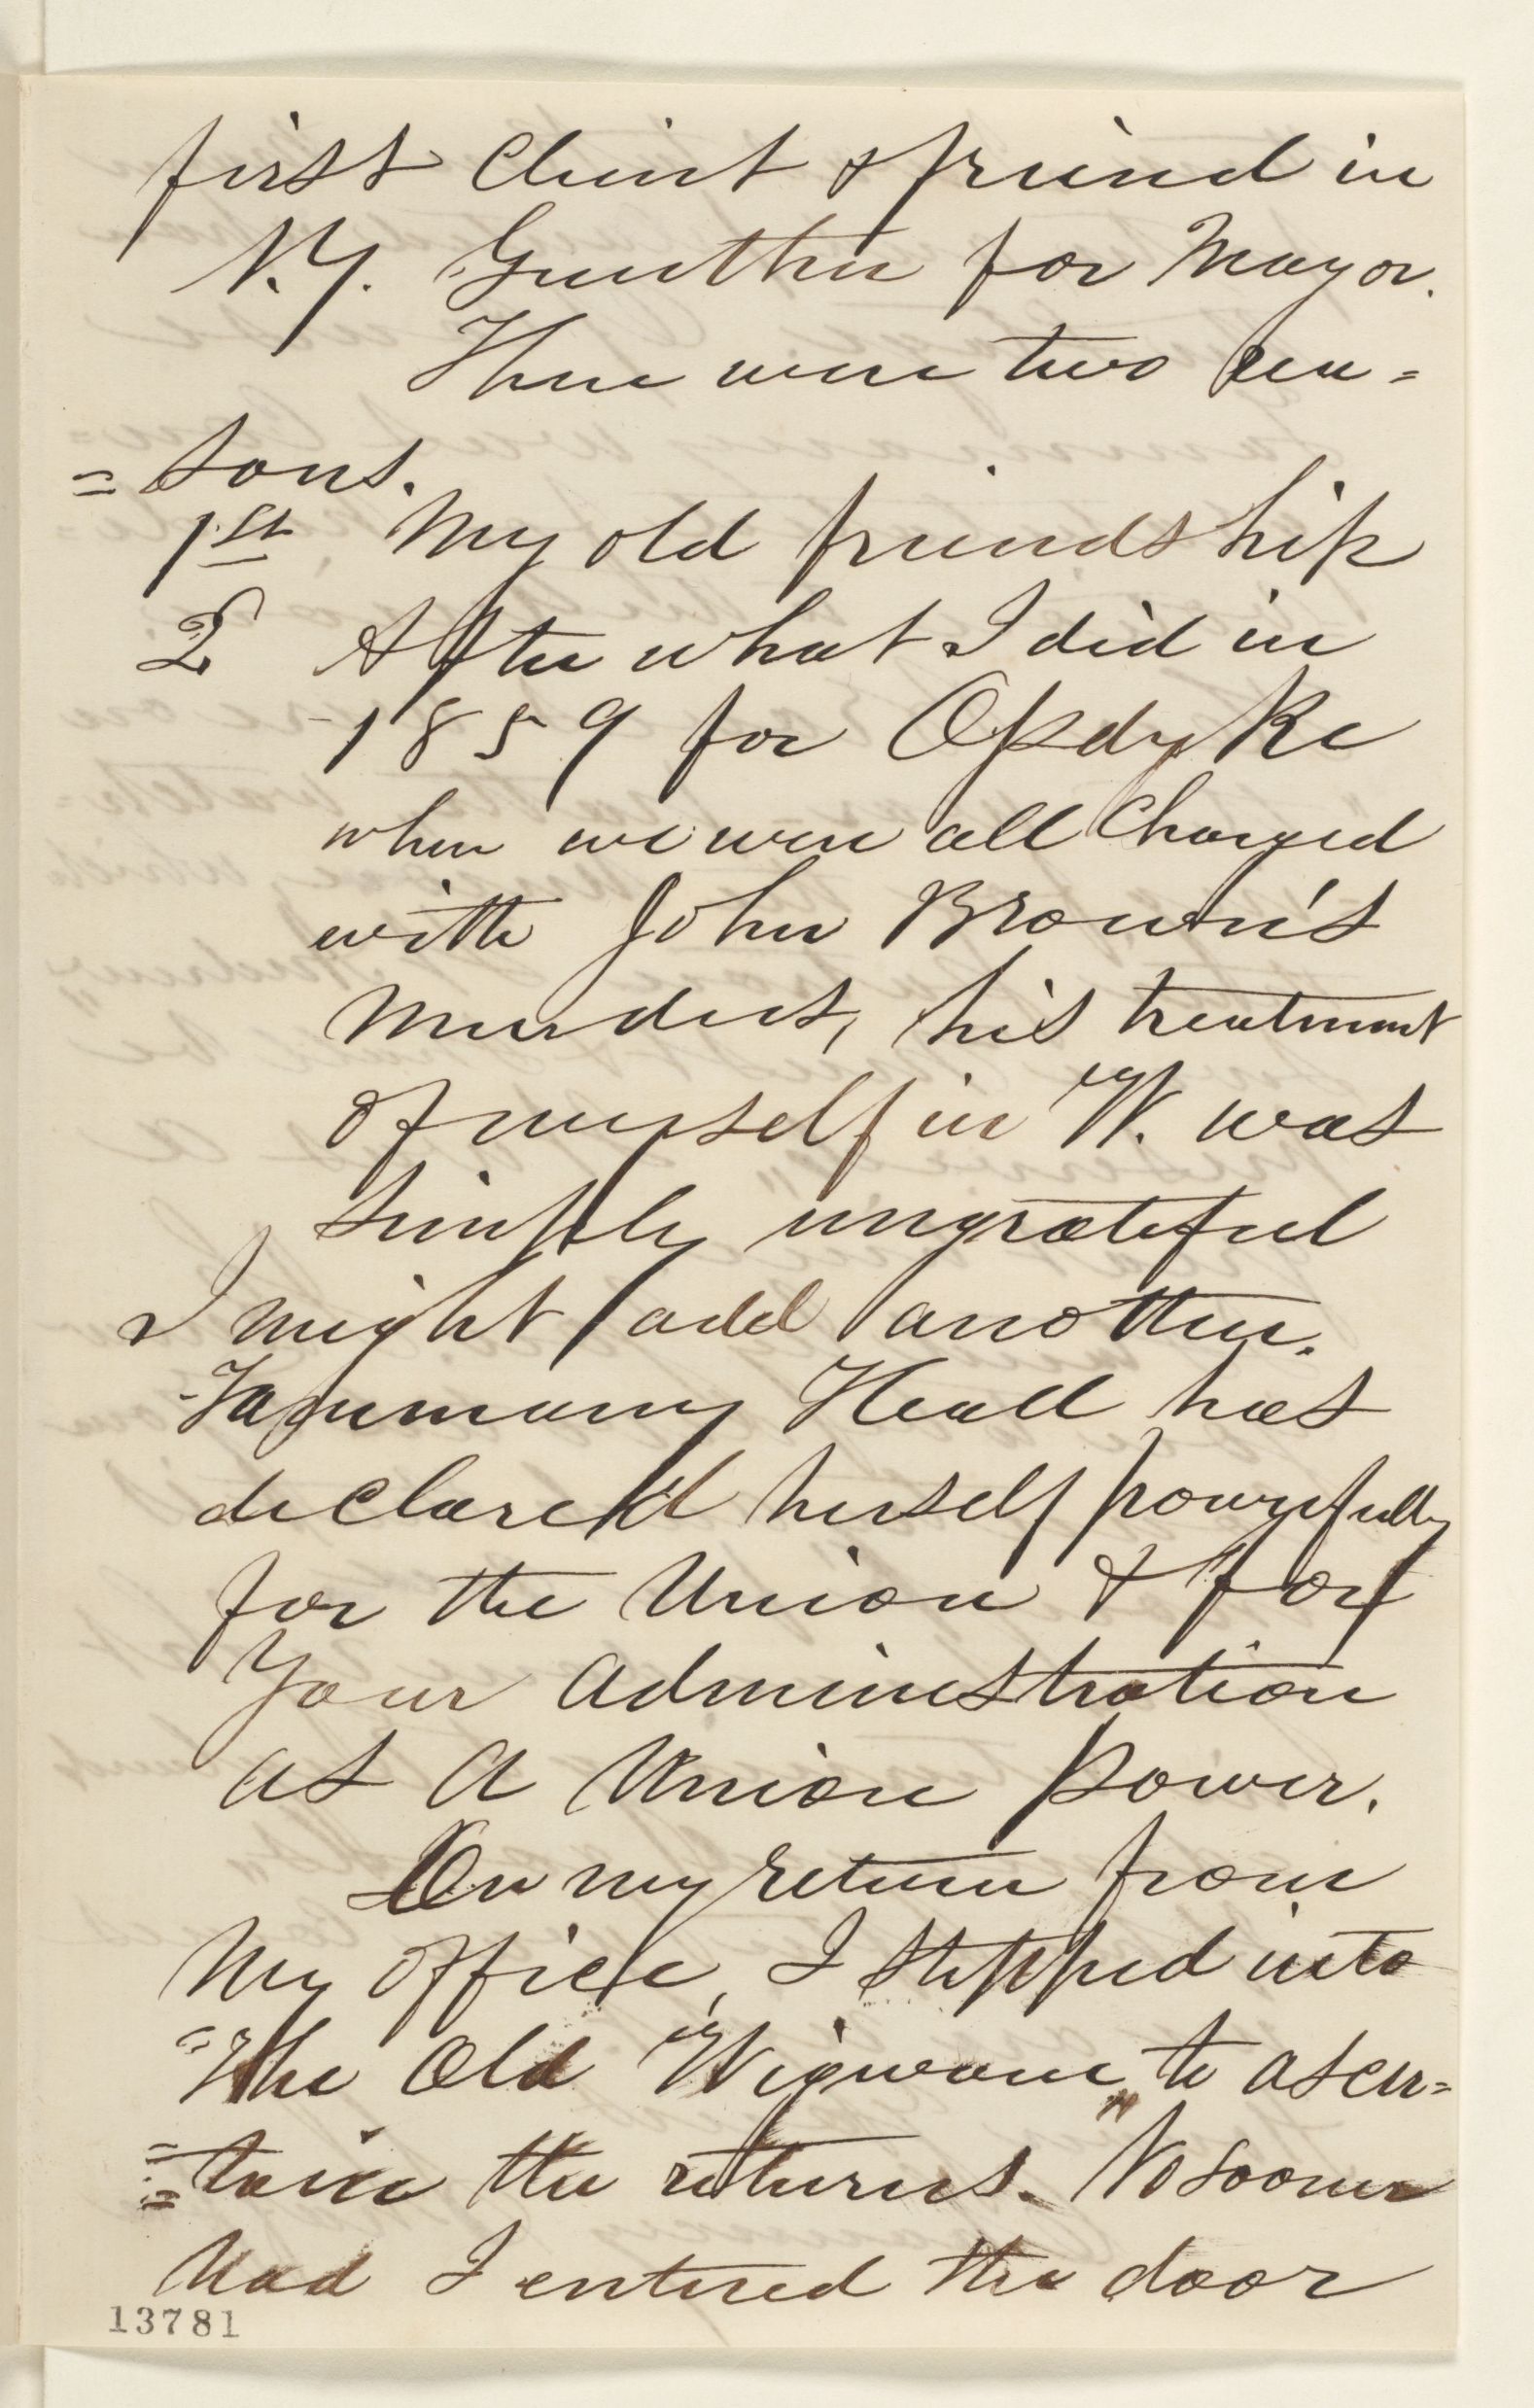 first Client & friend in
N.Y. Gunther for Mayor.
There were two rea=
=sons.
1st My old friendship
2d After what I did in
1859 for Opdyke
when we were all Charged
with John Brown's
Murders, his treatment
of myself in W. was
simply ungrateful
I might add another.
Tammany Hall has
declared herself powerfully
for the Union & for
Your Administration
as a Union power.
On my return from
my office, I stepped into
"The Old Wigwam" to ascer=
=tain the returns. No sooner
had I entered the door
13781